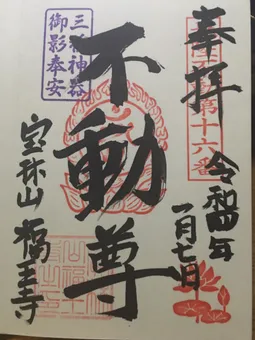 奉拝
第十六番
令和四年
一月七日
三種神器
御影奉安
不動尊
福王寺